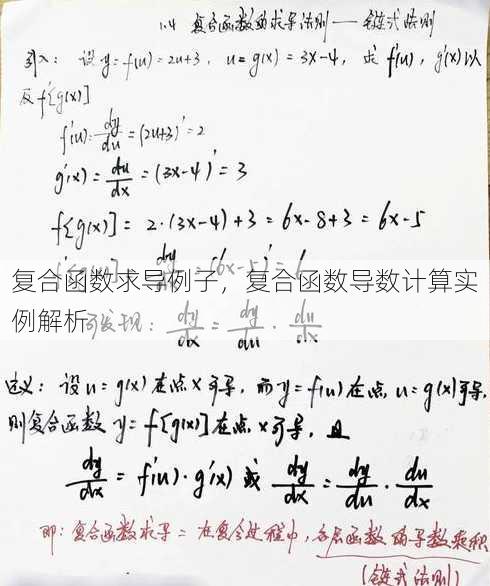 1.4 复合函数的求导法则——链式法则
引入：设y=f(u)=2u+3，u=g(x)=3x-4，求f'(u)，g'(x)以
及f'[g(x)]
f'(u)=dy/du=(2u+3)'=2
g'(x)=du/dx=(3x-4)'=3
f[g(x)]=2·(3x-4)+3=6x-8+3=6x-5
dy =(6x-5)'=6
复合函数求导例子，复合函数导数计算实
例解析
可发现：dy/dx=dy/du·du/dx
定义：设u=g(x)在点x可导，而y=f(u)在点u=g(x)可导，
则复合函数y=f[g(x)]在点x可导，且
dy/dx=f'(u)·g'(x)或dy/dx=dy/du·du/dx
即：复合函数求导=在复合过程中，各层函数的导数乘积
(链式法则)